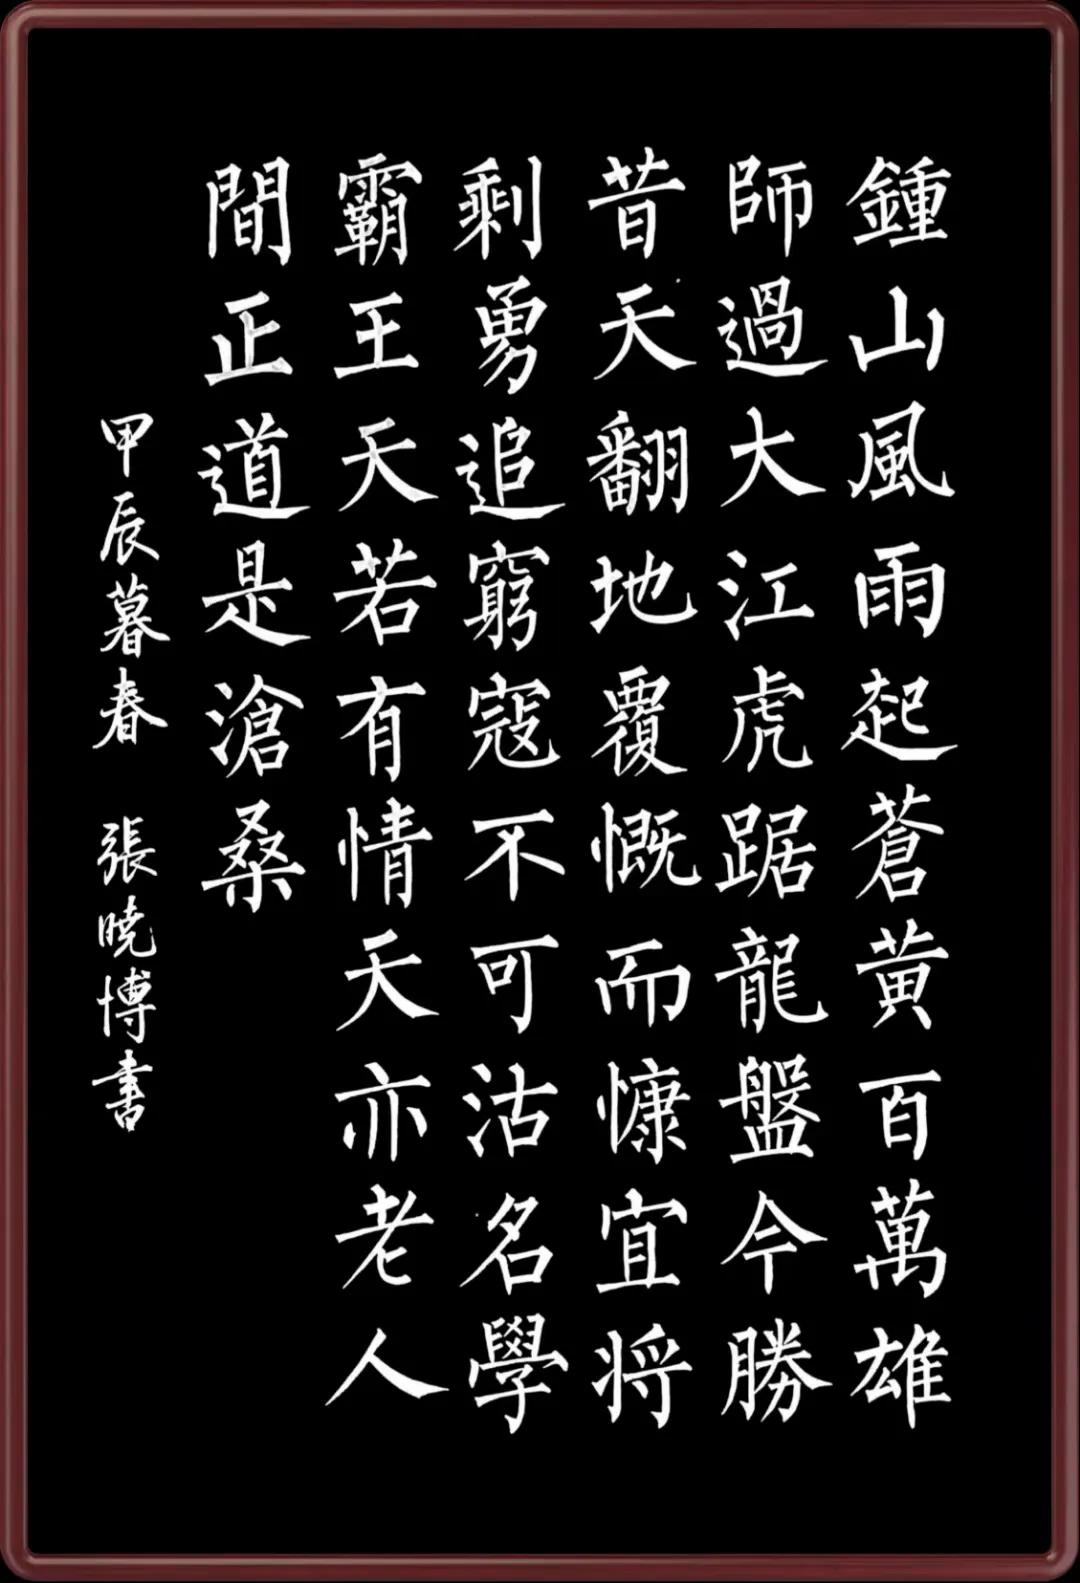 鍾山風雨起蒼黃百萬雄
師過大江虎踞龍盤今勝
昔天翻地覆慨而慷宜将
剩勇追窮寇不可沽名學
霸王天若有情天亦老人
間正道是滄桑
甲辰暮春 張曉博書